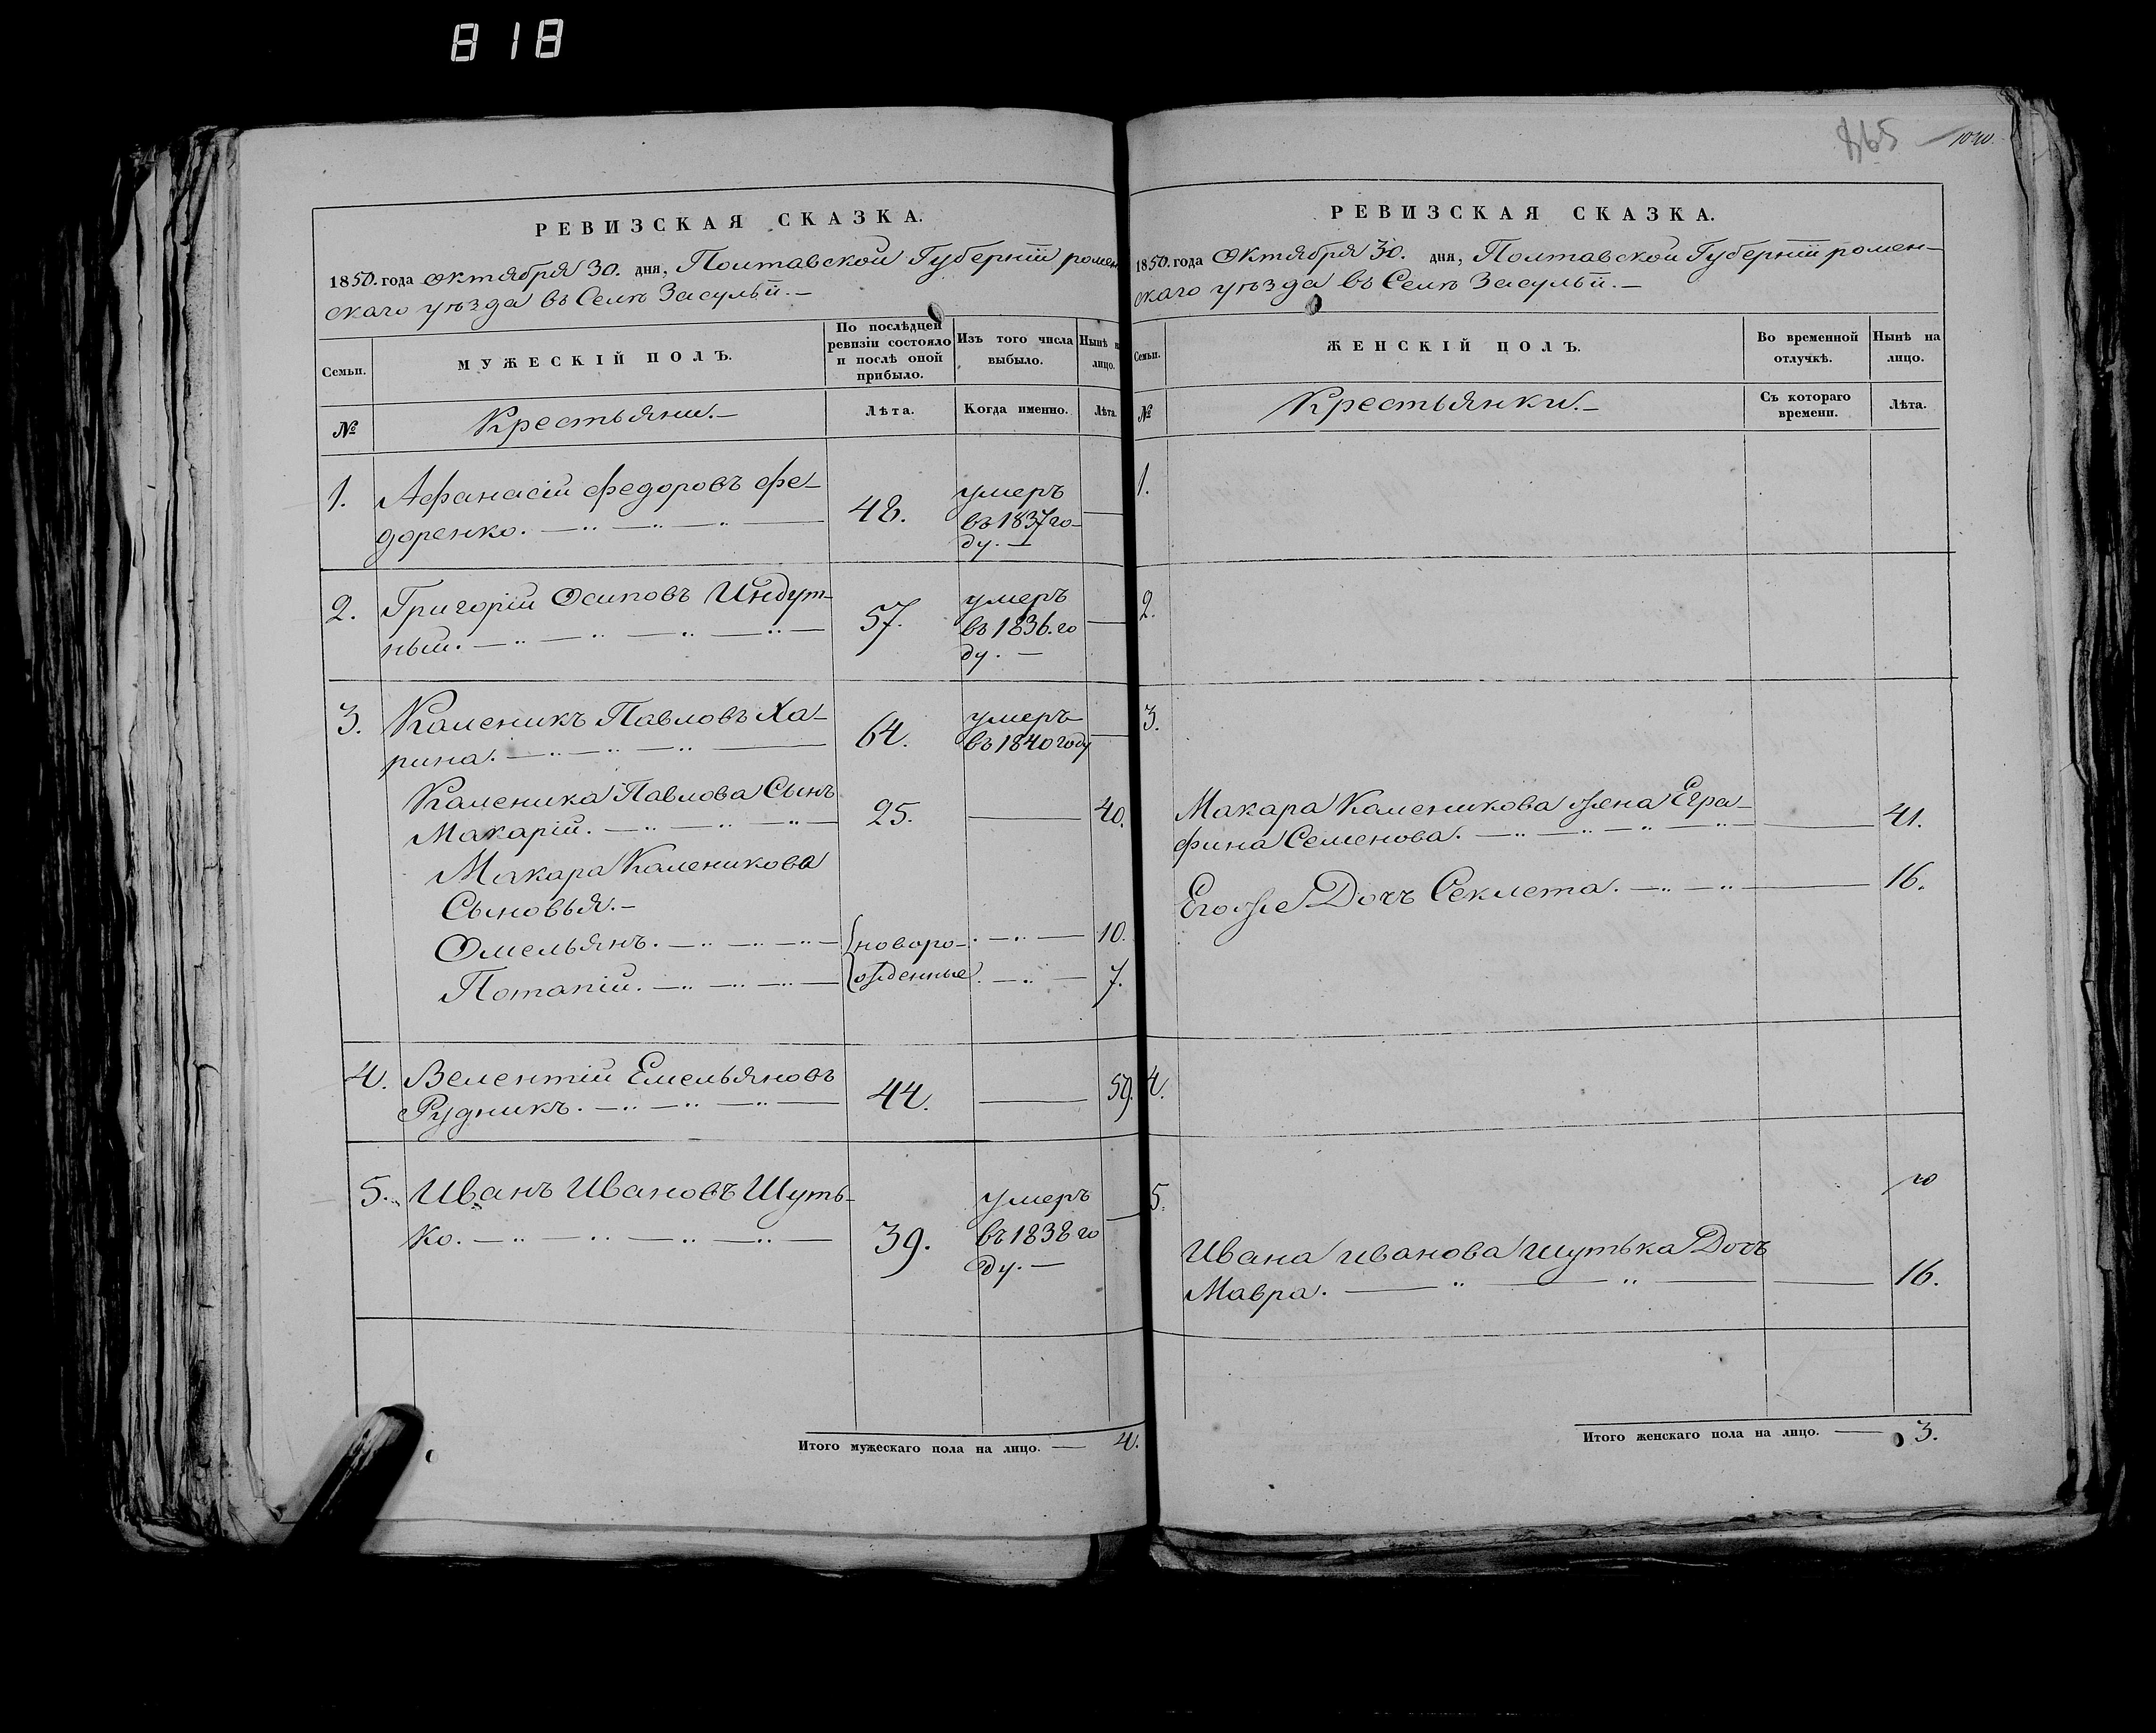 818
РЕВИЗСКАЯ СКАЗКА.
1850. года Октября 30. дня, Полтавской Губерніи ромен
скаго уѣзда въ Селѣ Засульи. —
Семьи.
МУЖЕСКІЙ ПОЛЪ.
По послѣдней ревизіи состояло и послѣ оной прибыло.
Изъ того числа выбыло.
Нынѣ на лицо.
№
Крестьяни. —
Лѣта.
Когда именно.
Лѣта.
1. Афанасій Федоровъ Фе-
доренко. 48. умеръ
въ 1837 го-
ду. —
2. Григорій Осиповъ Индут-
ный. 57. умеръ
въ 1836. го
ду. —
3. Каленикъ Павловъ Ха-
рина. 64. умеръ
въ 1840 году
Каленика Павлова Сынъ
Макарій. 25. 40.
Макара Каленикова
Сыновья. —
Омельянъ. новоро- 10.
Потапій. жденные 7.
4. Велентій Емельяновъ
Рудникъ. 44. 59.
5. Иванъ Ивановъ Шуть-
ко. 39. умеръ
въ 1838 го
ду. —
Итого мужескаго пола на лицо. — 4.
865 1040.
РЕВИЗСКАЯ СКАЗКА.
1850. года Октября 30. дня, Полтавской Губерніи ромен-
скаго уѣзда въ Селѣ Засульи. —
Семьи.
ЖЕНСКІЙ ПОЛЪ.
Во временной отлучкѣ.
Нынѣ на лицо.
№
Крестьянки. —
Съ котораго времени.
Лѣта.
1.
2.
3.
Макара Каленикова жена Егра-
фина Семенова. 41.
Егоже Дочь Секлета. 16.
4.
5.
Ивана Иванова Шутька Дочь
Мавра. 16.
Итого женскаго пола на лицо. — 3.